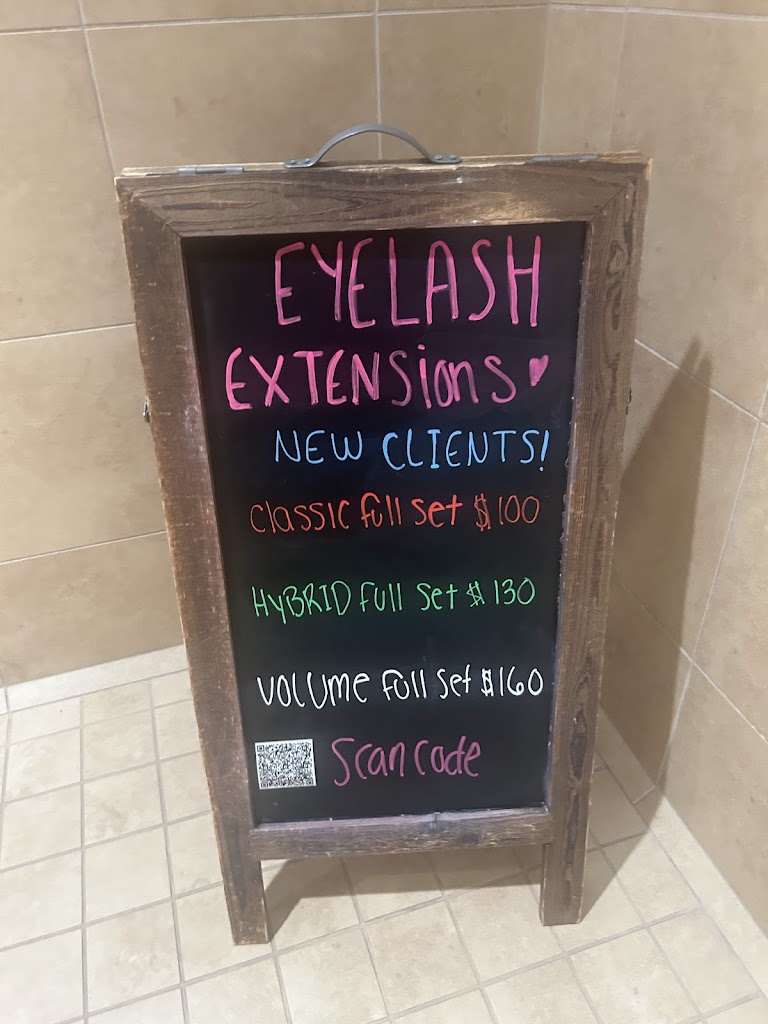 EYELASH
EXTENSions ♥
NEW CLIENTS!
Classic full set $100
HyBRID full set $130
VOLUMe full set $160
Scan code